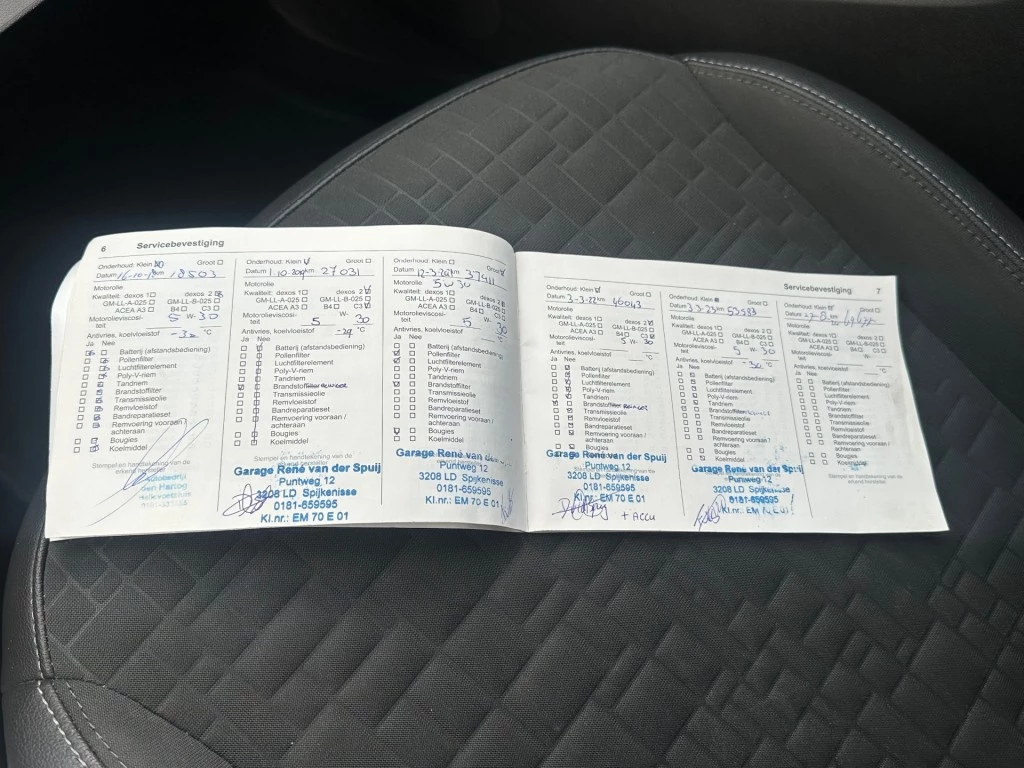 6 Servicebevestiging
Onderhoud: Klein Groot
Datum 16-10- km 18503
Motorolie
Kwaliteit: dexos 1 dexos 2
GM-LL-A-025 GM-LL-B-025
ACEA A3 B4 C3
Motorolieviscosi- 5 W- 30
teit
Antivries, koelvloeistof °C
Ja Nee
Batterij (afstandsbediening)
Pollenfilter
Luchtfilterelement
Poly-V-riem
Tandriem
Brandstoffilter
Transmissieolie
Remvloeistof
Bandreparatieset
Remvoering vooraan /
achteraan
Bougies
Koelmiddel
Stempel en handtekening van de
Autobedrijf
den Hartog
Onderhoud: Klein V Groot
Datum 1.10. km 27031
Motorolie
Kwaliteit: dexos 1 dexos 2
GM-LL-A-025 GM-LL-B-025
ACEA A3 B4 C3
Motorolieviscosi- 5 W- 30
teit
Antivries, koelvloeistof °C
Ja Nee
Batterij (afstandsbediening)
Pollenfilter
Luchtfilterelement
Poly-V-riem
Tandriem
Brandstoffilter
Transmissieolie
Remvloeistof
Bandreparatieset
Remvoering vooraan /
achteraan
Bougies
Koelmiddel
Garage René van der Spuij
Puntweg 12
3208 LD Spijkenisse
0181-659595
Kl.nr.: EM 70 E 01
Onderhoud: Klein Groot
Datum 12-3- km
Motorolie 5W30
Kwaliteit: dexos 1 dexos 2
GM-LL-A-025 GM-LL-B-025
ACEA A3 B4 C3
Motorolieviscosi- 5 W- 30
teit
Antivries, koelvloeistof °C
Ja Nee
Batterij (afstandsbediening)
Pollenfilter
Luchtfilterelement
Poly-V-riem
Tandriem
Brandstoffilter
Transmissieolie
Remvloeistof
Bandreparatieset
Remvoering vooraan /
achteraan
Bougies
Koelmiddel
Garage René van de
Puntweg 12
3208 LD Spijkenisse
0181-659595
Kl.nr.: EM 70 E 01
Servicebevestiging 7
Onderhoud: Klein Groot
Datum 3-3-22 km 46043
Motorolie
Kwaliteit: dexos 1 dexos 2
GM-LL-A-025 GM-LL-B-025
ACEA A3 B4 C3
Motorolieviscosi- 5 W- 30
teit
Antivries, koelvloeistof °C
Ja Nee
Batterij (afstandsbediening)
Pollenfilter
Luchtfilterelement
Poly-V-riem
Tandriem
Brandstoffilter
Transmissieolie
Remvloeistof
Bandreparatieset
Remvoering vooraan /
achteraan
Bougies
Koelmiddel
Garage René van der Spuij
Puntweg 12
3208 LD Spijkenisse
0181-659595
Kl.nr.: EM 70 E 01
+ ACCU
Onderhoud: Klein Groot
Datum 3-3-23 km
Motorolie
Kwaliteit: dexos 1 dexos 2
GM-LL-A-025 GM-LL-B-025
ACEA A3 B4 C3
Motorolieviscosi- 5 W- 30
teit
Antivries, koelvloeistof -30 °C
Ja Nee
Batterij (afstandsbediening)
Pollenfilter
Luchtfilterelement
Poly-V-riem
Tandriem
Brandstoffilter
Transmissieolie
Remvloeistof
Bandreparatieset
Remvoering vooraan /
achteraan
Bougies
Koelmiddel
Garage René van der Spuij
Puntweg 12
3208 LD Spijkenisse
0181-659595
Kl.nr.: EM 70 E 01
Onderhoud: Klein Groot
Datum
Motorolie
Kwaliteit: dexos 1 dexos 2
GM-LL-A-025 GM-LL-B-025
ACEA A3 B4 C3
Motorolieviscosi- W-
teit
Antivries, koelvloeistof °C
Ja Nee
Batterij (afstandsbediening)
Pollenfilter
Luchtfilterelement
Poly-V-riem
Tandriem
Brandstoffilter
Transmissieolie
Remvloeistof
Bandreparatieset
Remvoering vooraan /
achteraan
Bougies
Koelmiddel
Stempel en handtekening van de
erkend hersteller